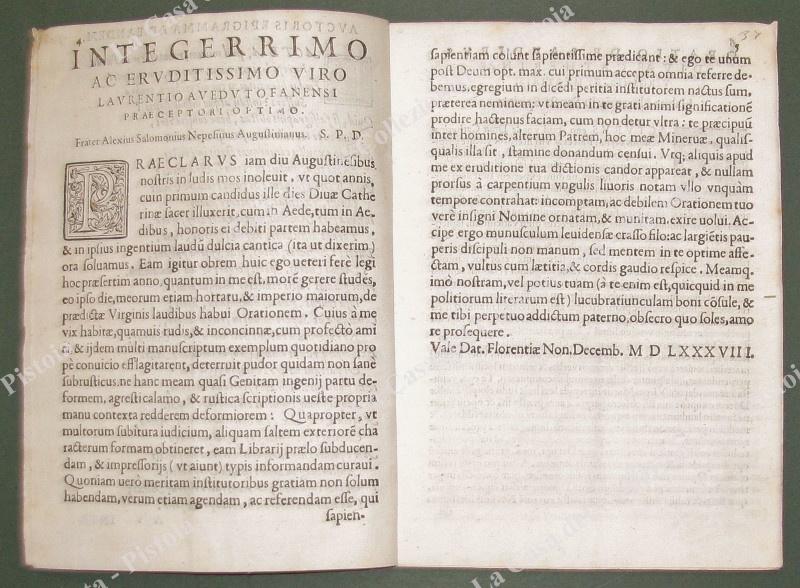 INTEGERRIMO
AC ERVDITISSIMO VIRO
LAVRENTIO AVEDVTO FANENSI
PRAECEPTORI OPTIMO.
Frater Alexius Salomonius Nepesinus Augustinianus. S. P. D.
PRAECLARVS iam diu Augustinēsibus
nostris in ludis mos inoleuit. vt quot annis,
cum primum candidus ille dies Diuæ Cathe
rinæ sacer illuxerit, cum in Aede, tum in Ae-
dibus, honoris ei debiti partem habeamus,
& in ipsius ingentium laudū dulcia cantica (ita ut dixerim)
ora soluamus. Eam igitur obrem huic ego ueteri ferè legi
hoc præsertim anno, quantum in me est, morē gerere studēs,
eo ipso die, meorum etiam hortatu, & imperio maiorum, de
prædictæ Virginis laudibus habui Orationem. Cuius à me
vix habitæ, quamuis rudis, & inconcinnæ, cum profectò ami
ci, & ijdem multi manuscriptum exemplum quotidiano pro
pè conuicio efflagitarent, deterruit pudor quidam non sanè
subrusticus, ne hanc meam quasi Genitam ingenij partu de-
formem, agresti calamo, & rustica scriptionis ueste propria
manu contexta redderem deformiorem: Quapropter, vt
multorum subitura iudicium, aliquam saltem exteriorē cha
racterum formam obtineret, eam Librarij prælo subducen-
dam, & impressorijs (vt aiunt) typis informandam curaui.
Quoniam uerò meritam institutoribus gratiam non solum
habendam, verum etiam agendam, ac referendam esse, qui
sapien-
37
sapientiam colunt sapientissimè prædicant: & ego te unum
post Deum opt. max. cui primum accepta omnia referre de-
bemus, egregium in dicēdi peritia institutorem nactus sum,
præterea neminem; vt meam in te grati animi significationē
prodire, hactenus faciam, cum non detur vltra: te præcipuū
inter homines, alterum Patrem, hoc meæ Mineruæ, qualis-
qualis illa sit, stamine donandum censui. Vtq; aliquis apud
me ex eruditione tua dictionis candor appareat, & nullam
prorsus à carpentium vngulis liuoris notam vllo vnquàm
tempore contrahat: incomptam, ac debilem Orationem tuo
verè insigni Nomine ornatam, & munitam, exire uolui. Ac-
cipe ergo munusculum leuidensæ crasso filo: ac largiētis pau-
peris discipuli non manum, sed mentem in te optime affe-
ctam, vultus cum lætitia, & cordis gaudio respice. Meamq.
imò nostram, vel potius tuam (à te enim est, quicquid in me
politiorum literarum est) lucubratiunculam boni cōsule, &
me tibi perpetuo addictum paterno, obsecro quo soles, amo
re prosequere.
Vale Dat. Florentiæ Non. Decemb. M D LXXXVIII.